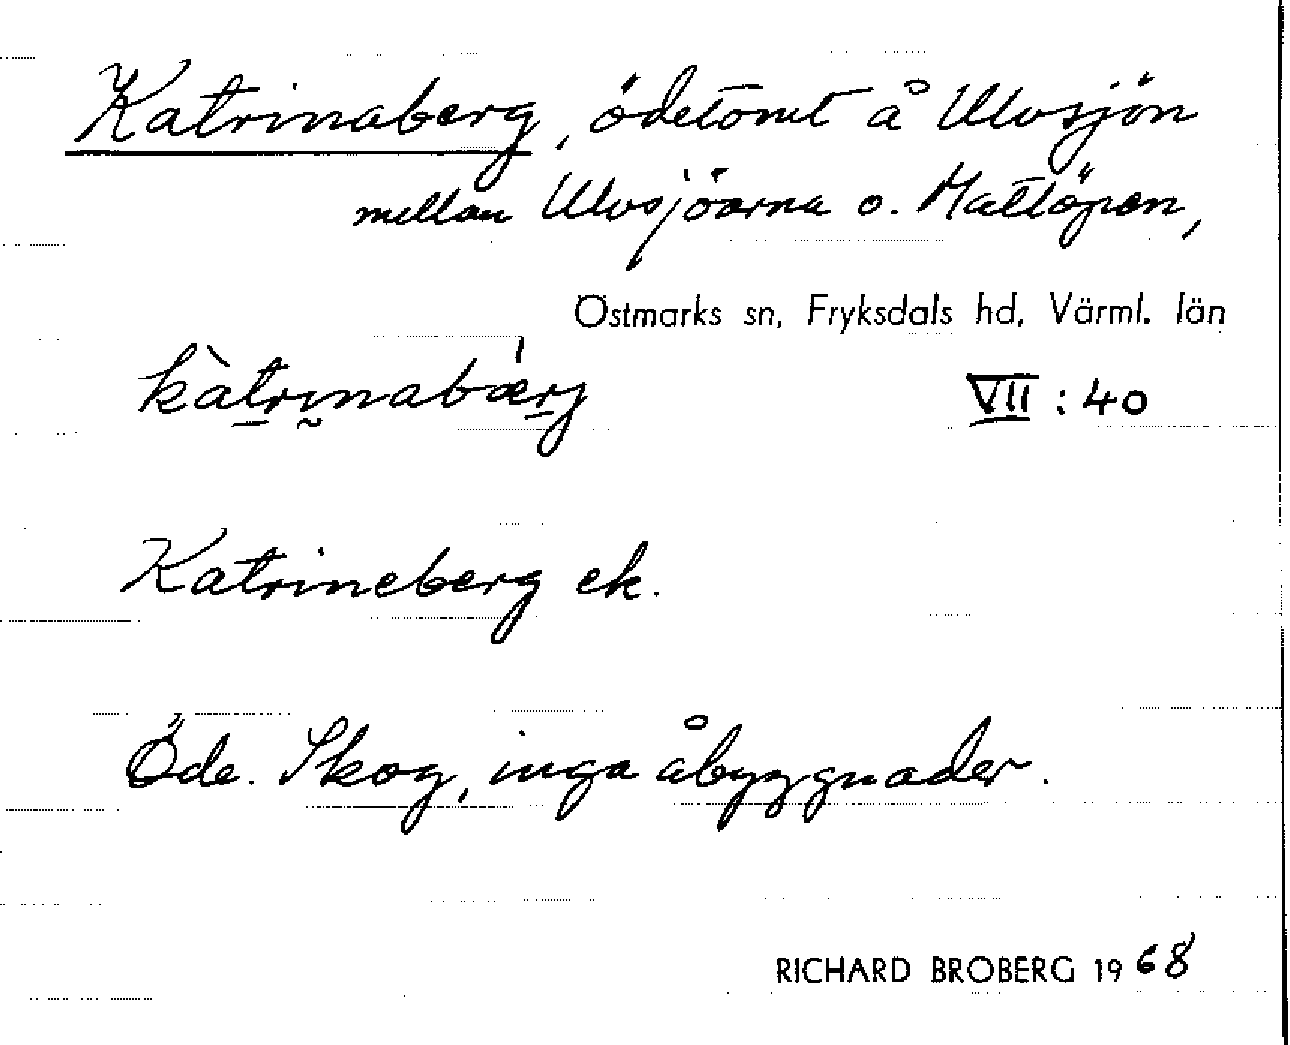 Katrinaberg, ödetomt å Ulvsjön
mellan Ulvsjöarna o. Mattöpen,
Östmarks sn, Fryksdals hd, Värml. län
kàtrinabǽrj
VII : 40
Katrineberg ek.
Öde. Skog, inga åbyggnader.
RICHARD BROBERG 1968